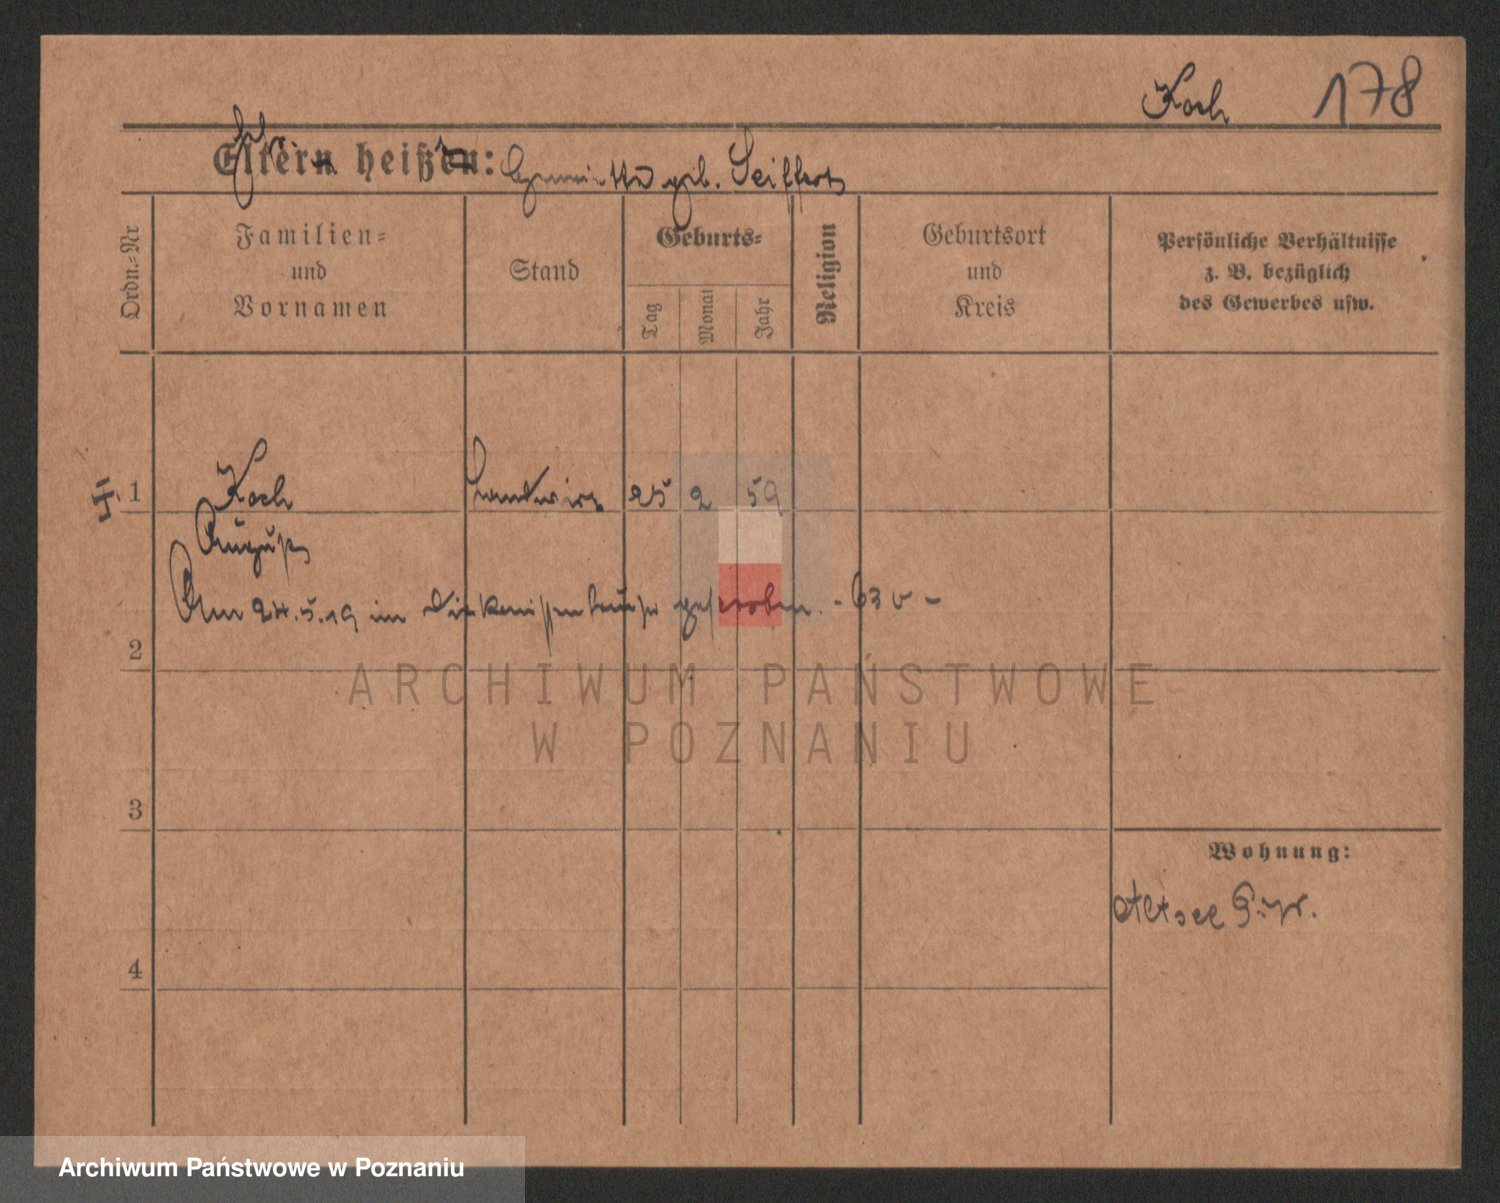 Koch 178
Eltern heißen: geb. Seiffert
Ordn.-Nr
Familien-
und
Vornamen
Stand
Geburts-
Tag
Monat
Jahr
Religion
Geburtsort
und
Kreis
Persönliche Verhältnisse
z. B. bezüglich
des Gewerbes usw.
1 Koch Landwirt 25 2 59
August
Am 24.5.19 im Diakonissenhause gestorben. - 63 v -
2
3
4
Wohnung:
Altsee G.W.
ARCHIWUM PAŃSTWOWE
W POZNANIU
Archiwum Państwowe w Poznaniu